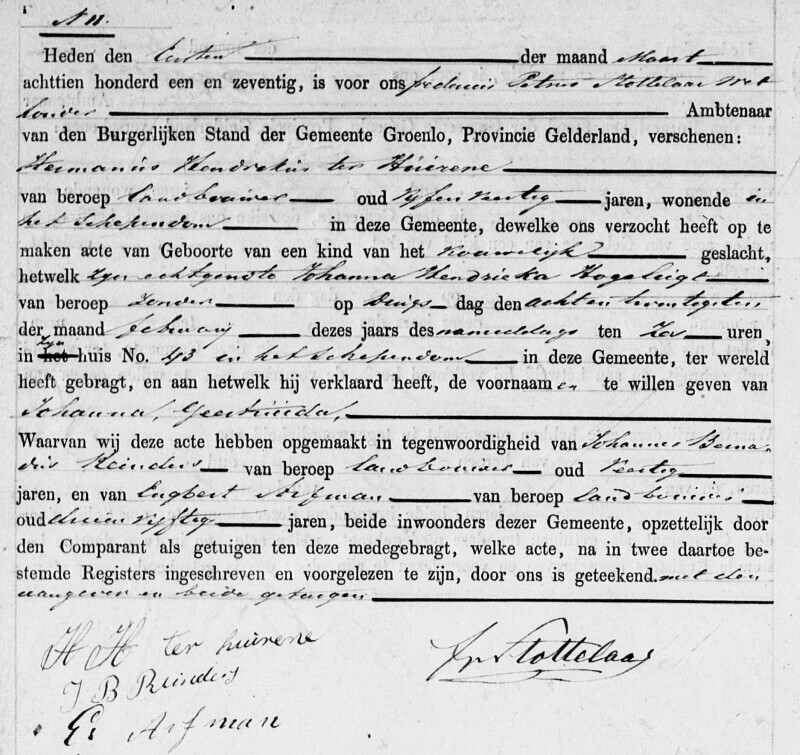 N 11.
Heden den Eersten der maand Maart
achttien honderd een en zeventig, is voor ons Petrus Stottelaar Wet
houder Ambtenaar
van den Burgerlijken Stand der Gemeente Groenlo, Provincie Gelderland, verschenen:
Hermanus Hendrikus ter Huurne
van beroep Landbouwer oud Vyfenveertig jaren, wonende in
het Schependom in deze Gemeente, dewelke ons verzocht heeft op te
maken acte van Geboorte van een kind van het Vrouwelijk geslacht,
hetwelk zyn echtgenote Johanna Hendrieka
van beroep Zonder op Dings dag den achtentwintigsten
der maand february dezes jaars des nameddags ten Zes uren,
in zyn het huis No. 43 in het Schependom in deze Gemeente, ter wereld
heeft gebragt, en aan hetwelk hij verklaard heeft, de voornaamen te willen geven van
Johanna, Geertruida,
Waarvan wij deze acte hebben opgemaakt in tegenwoordigheid van Johannes Berna-
dus Reinders van beroep Landbouwer oud Veertig
jaren, en van Engbert Arfman van beroep Landbouwer
oud drieenvyftig jaren, beide inwoonders dezer Gemeente, opzettelijk door
den Comparant als getuigen ten deze medegebragt, welke acte, na in twee daartoe be-
stemde Registers ingeschreven en voorgelezen te zijn, door ons is geteekend. met den
aangever en beide getuigen
H H ter huurne
Fr Stottelaar
J B Reinders
E Arfman